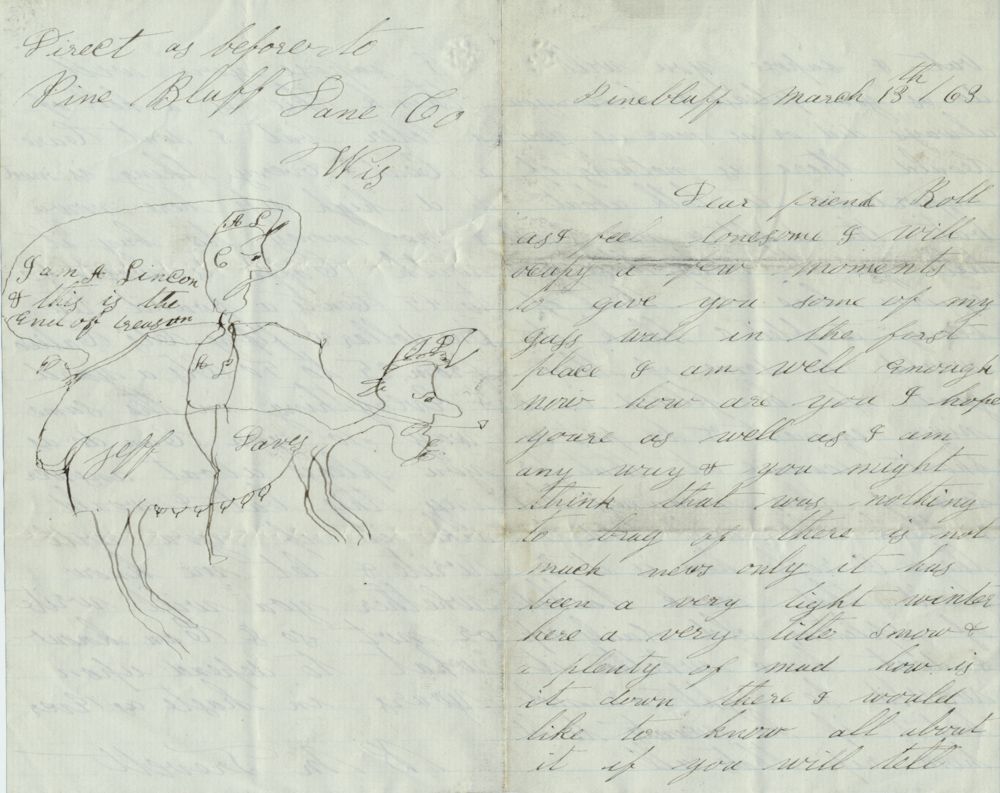 Direct as before to
Pine Bluff Dane Co
Wis
A L
C
I am A Lincon
& this is the
End of treason
A L
J D
Jeff Davis
Pinebluff March 13th / 63
Dear friend Roll
as I feel lonesome I will
ocupy a few moments
to give you some of my
gass wall in the first
place I am well enough
now how are you I hope
youre as well as I am
any way & you might
think that was nothing
to brag of there is not
much news only it has
been a very light winter
here a very little snow &
a plenty of mud how is
it down there I would
like to know all about
it if you will tell